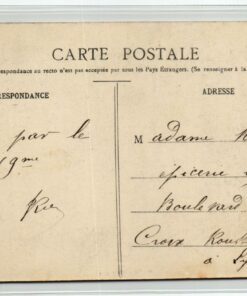 CARTE POSTALE
respondance au recto n'est pas acceptée par tous les Pays Étrangers. (Se renseigner à la
RESPONDANCE
ADRESSE
par le
9me
M adame
épicerie
Boulevard
Croix Rous
à Ly